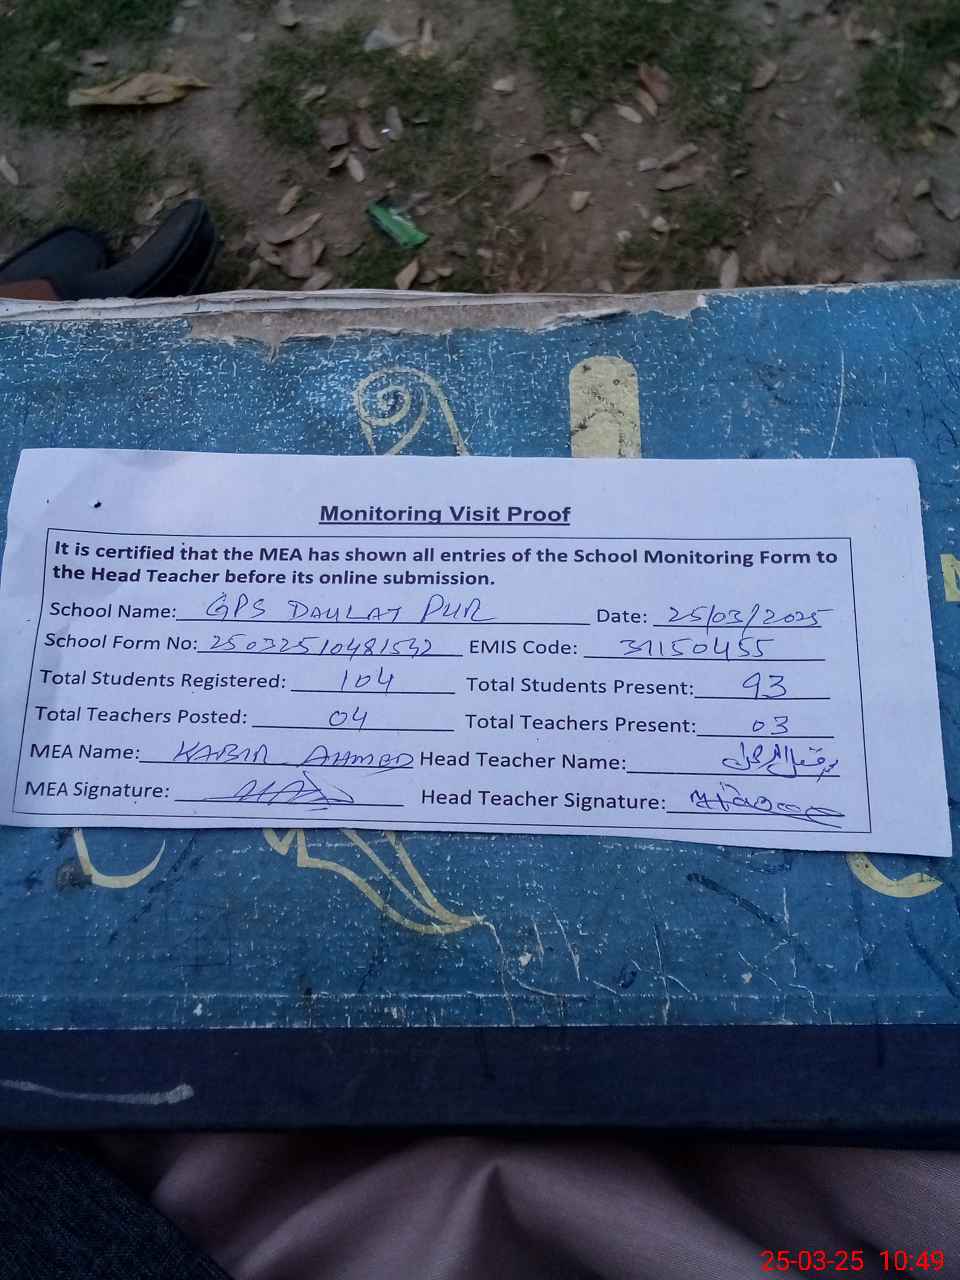 Monitoring Visit Proof
It is certified that the MEA has shown all entries of the School Monitoring Form to
the Head Teacher before its online submission.
School Name: GPS DAULAT PUR Date: 25/03/2025
School Form No: 25032510481542 EMIS Code: 31150455
Total Students Registered: 104 Total Students Present: 93
Total Teachers Posted: 04 Total Teachers Present: 03
MEA Name: KABIR AHMED Head Teacher Name:
MEA Signature: Head Teacher Signature:
25-03-25 10:49